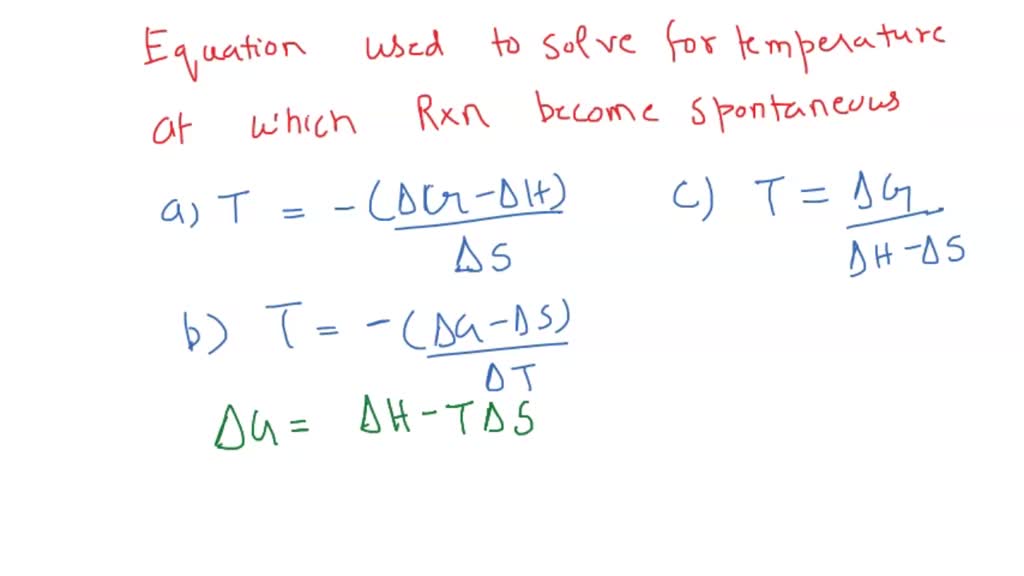 Equation used to solve for temperature
at which Rxn become spontaneous
a) T = -(ΔG-ΔH)/ΔS
c) T = ΔG/ΔH-ΔS
b) T = -(ΔG-ΔS)/ΔT
ΔG = ΔH-TΔS